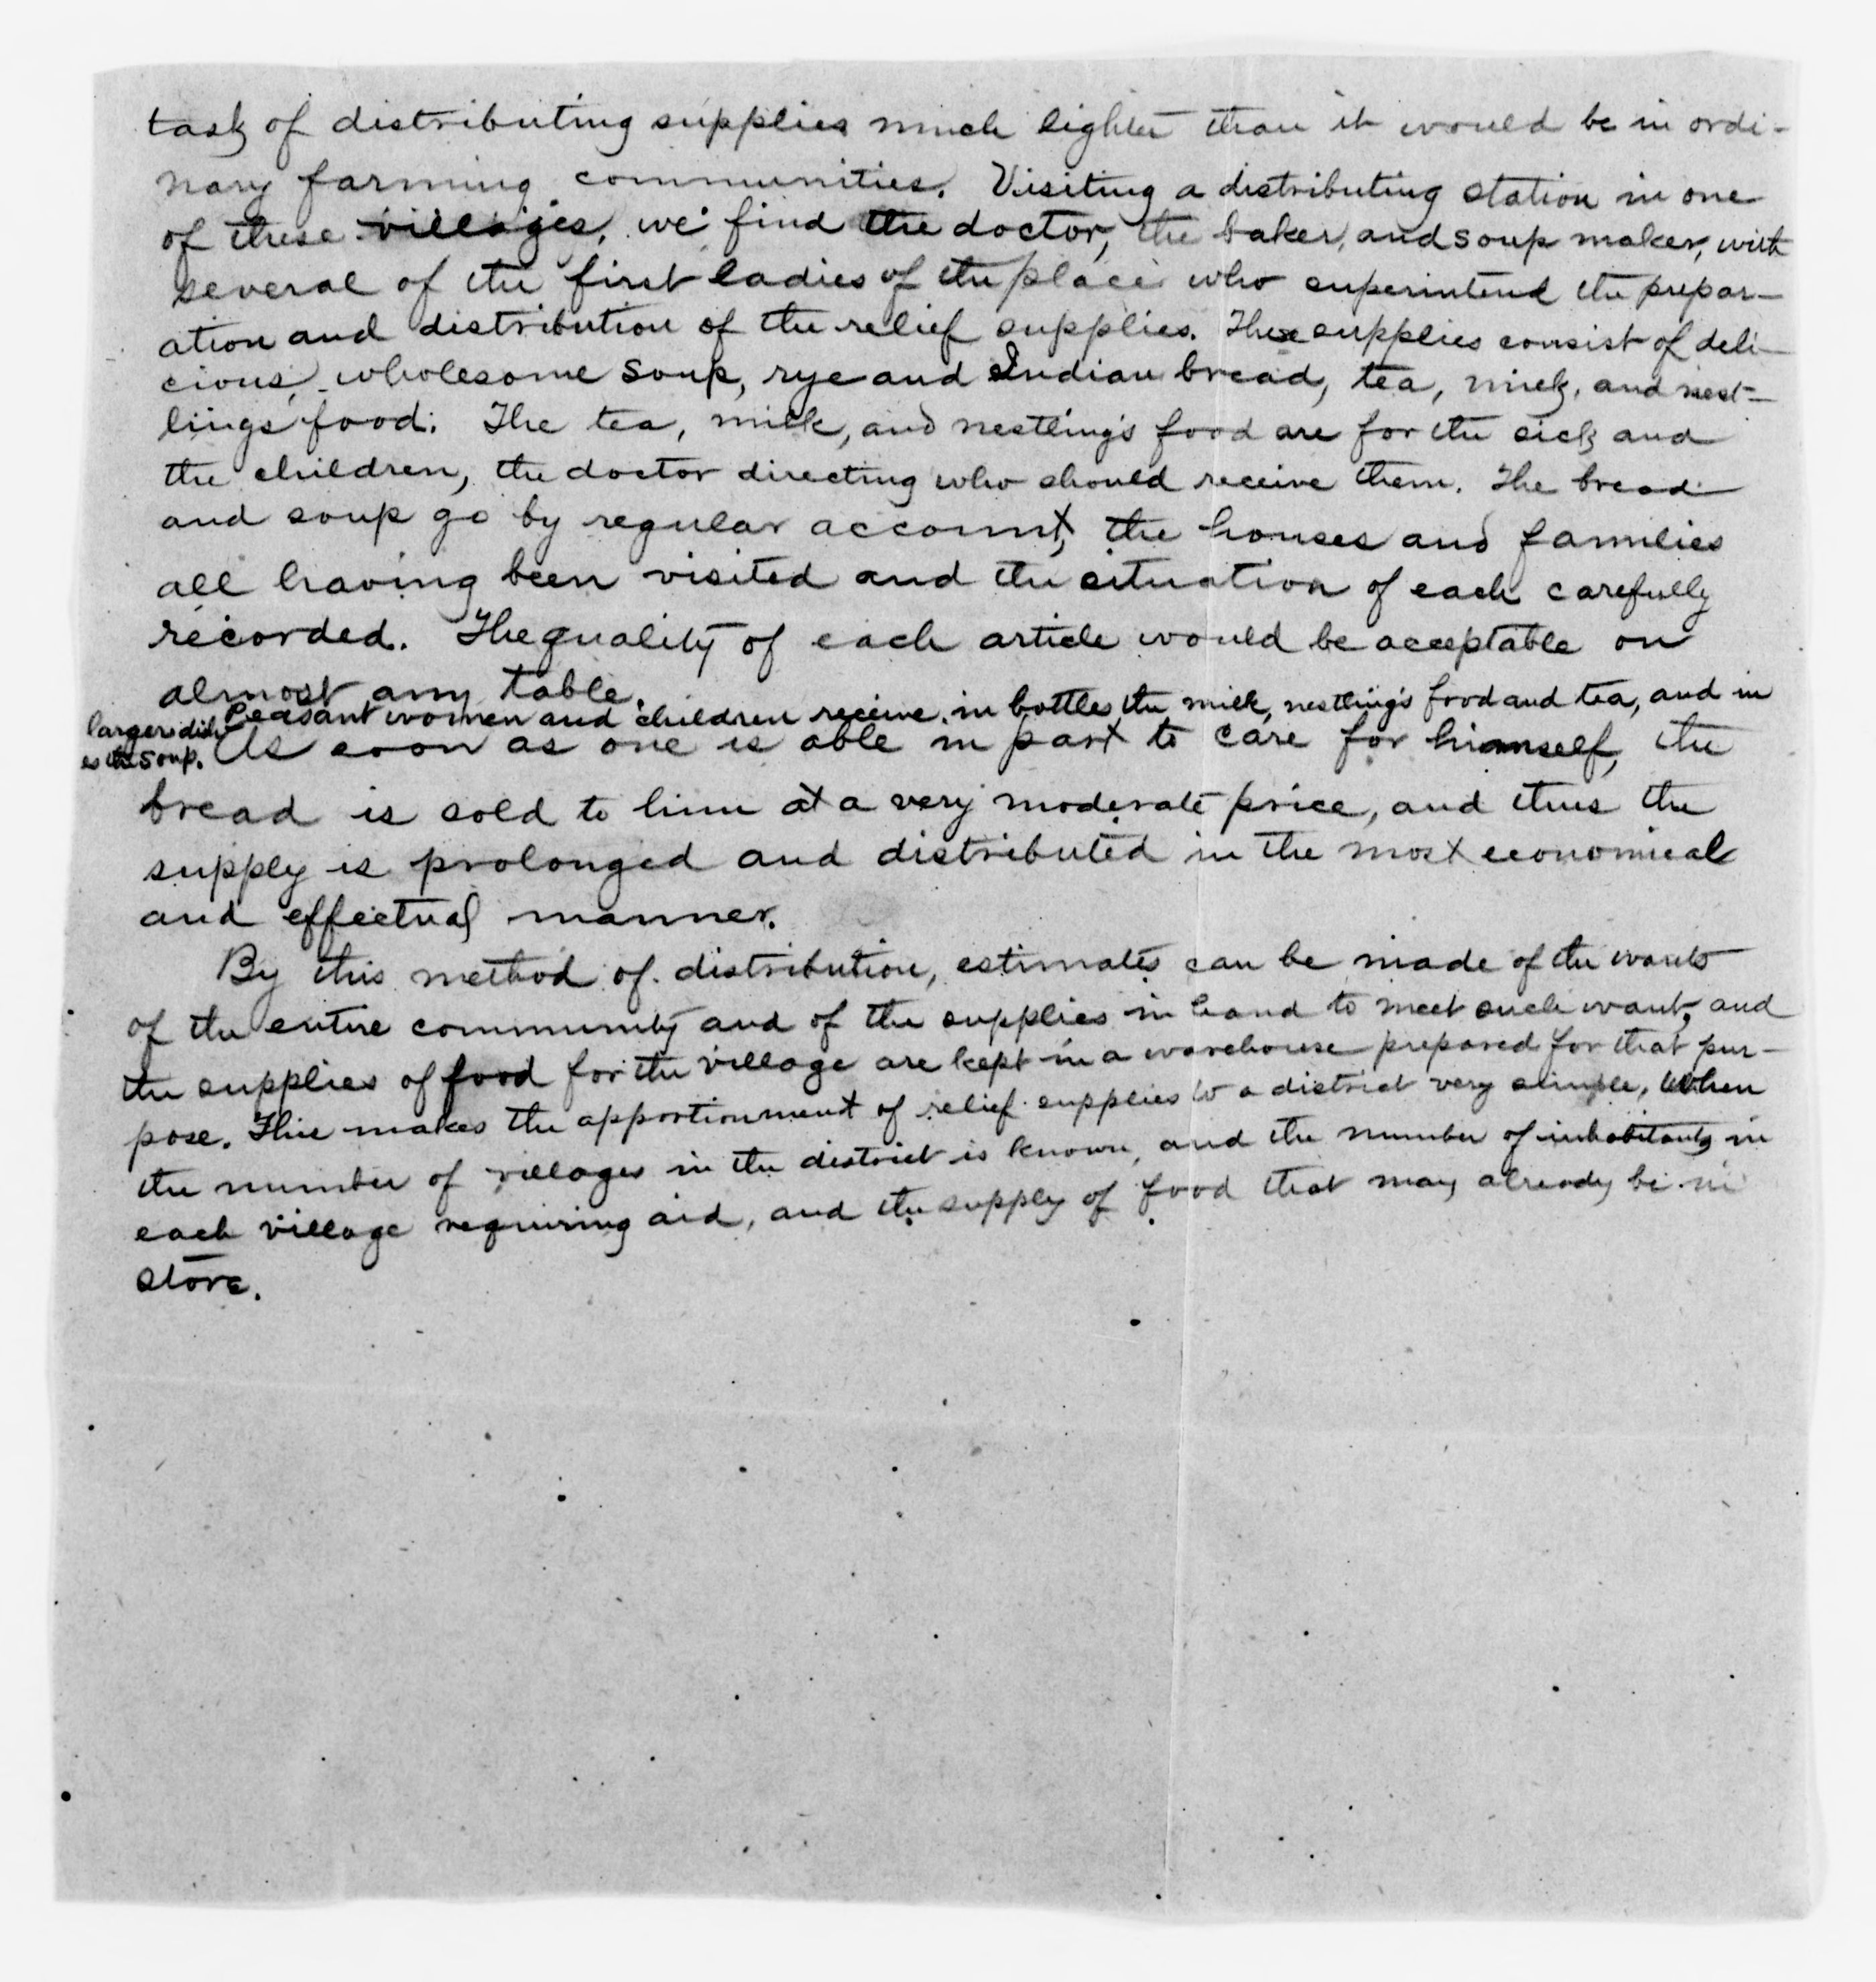 task of distributing supplies much lighter than it would be in ordi-
nary farming communities. Visiting a distributing station in one
of these villages, we find the doctor, the baker, and soup maker, with
several of the first ladies of the place who superintend the prepar-
ation and distribution of the relief supplies. These supplies consist of deli-
cious, wholesome soup, rye and Indian bread, tea, milk, and nest-
lings food. The tea, milk, and nestling's food are for the sick and
the children, the doctor directing who should receive them. The bread
and soup go by regular account, the houses and families
all having been visited and the situation of each carefully
recorded. The quality of each article would be acceptable on
almost any table.
Peasant women and children receive in bottles the milk, nestling's food and tea, and in
larger dish-
es the soup. As soon as one is able in part to care for himself, the
bread is sold to him at a very moderate price, and thus the
supply is prolonged and distributed in the most economical
and effectual manner.
By this method of distribution, estimates can be made of the wants
of the entire community and of the supplies in hand to meet such want, and
the supplies of food for the village are kept in a warehouse prepared for that pur-
pose. This makes the apportionment of relief supplies to a district very simple, when
the number of villages in the district is known, and the number of inhabitants in
each village requiring aid, and the supply of food that may already be in
store.